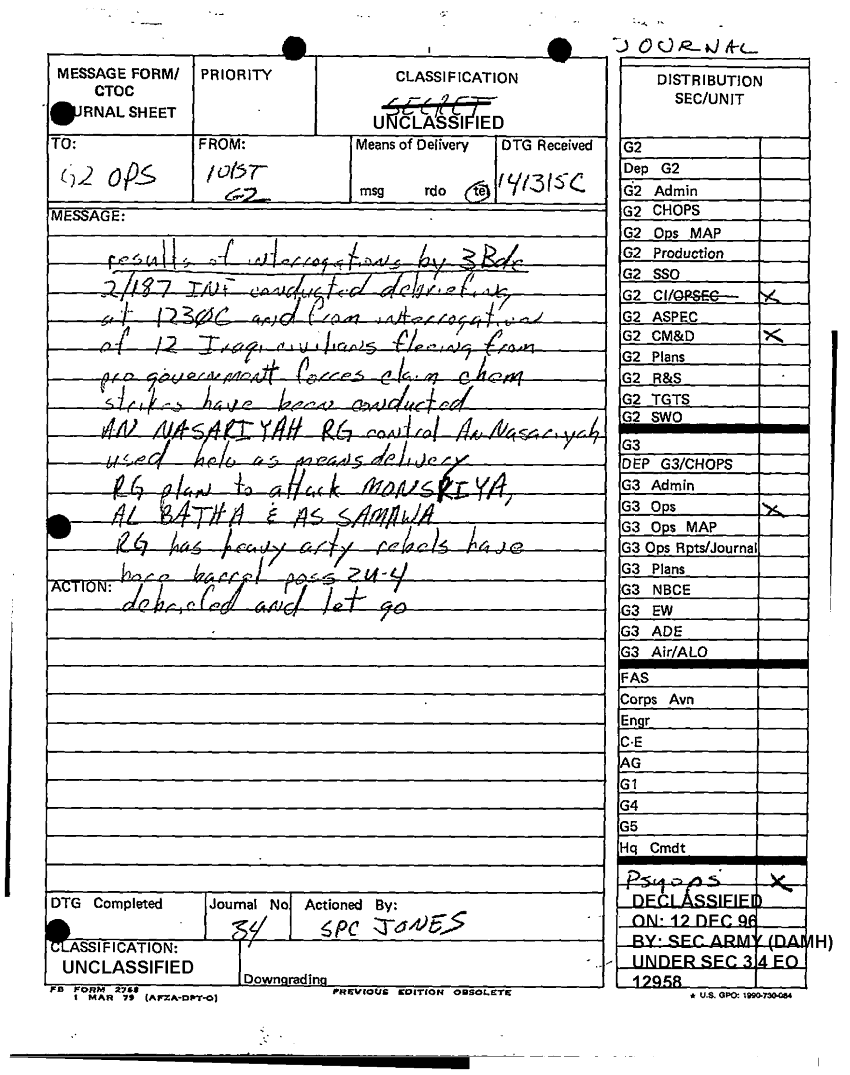 JOURNAL
MESSAGE FORM/
CTOC
URNAL SHEET
PRIORITY
CLASSIFICATION
SECRET
UNCLASSIFIED
DISTRIBUTION
SEC/UNIT
TO:
G2 OPS
FROM:
101ST
G2
Means of Delivery
msg rdo tel
DTG Received
141315C
MESSAGE:
results of interrogations by 3Bde
2/187 INF conducted debriefing
at 1230C and from interrogation
of 12 Iraqi civilians fleeing from
pro government forces claim chem
strikes have been conducted
AN NASARIYAH RG control An Nasariyah
used helo as means delivery
RG plan to attack MONSRIYA,
AL BATHA & AS SAMAWA
RG has heavy arty rebels have
bore barrel poss ZU-4
ACTION:
debriefed and let go
G2
Dep G2
G2 Admin
G2 CHOPS
G2 Ops MAP
G2 Production
G2 SSO
G2 CI/OPSEC X
G2 ASPEC
G2 CM&D X
G2 Plans
G2 R&S
G2 TGTS
G2 SWO
G3
DEP G3/CHOPS
G3 Admin
G3 Ops X
G3 Ops MAP
G3 Ops Rpts/Journal
G3 Plans
G3 NBCE
G3 EW
G3 ADE
G3 Air/ALO
FAS
Corps Avn
Engr
C-E
AG
G1
G4
G5
Hq Cmdt
Psyops X
DECLASSIFIED
ON: 12 DEC 96
BY: SEC ARMY (DAMH)
UNDER SEC 3 4 EO
12958
DTG Completed
Journal No.
34
Actioned By:
SPC JONES
CLASSIFICATION:
UNCLASSIFIED
Downgrading
FB FORM 2768
1 MAR 79 (AFZA-DPT-O)
PREVIOUS EDITION OBSOLETE
★ U.S. GPO: 1990-730-084